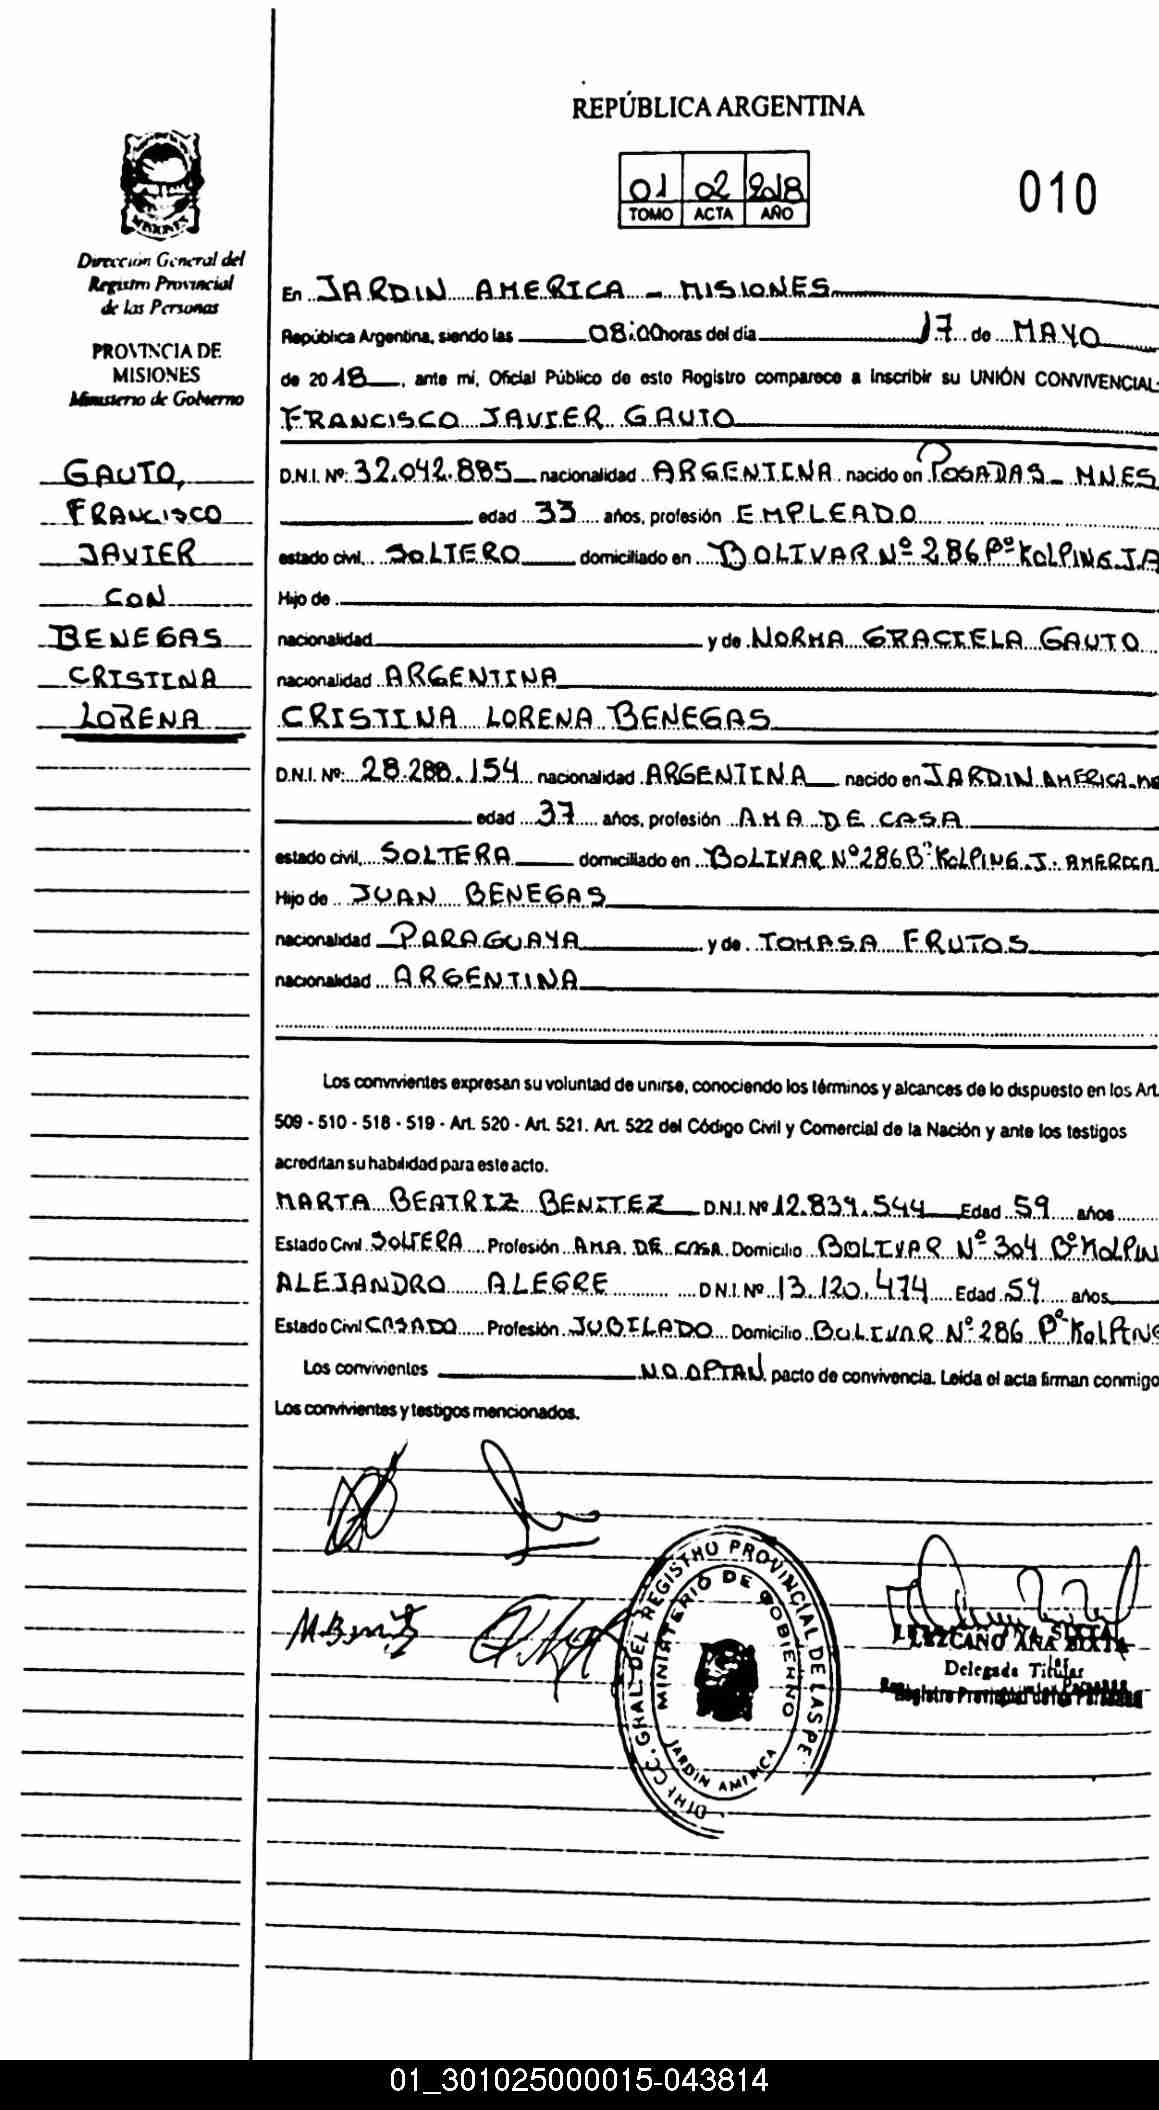 REPÚBLICA ARGENTINA
01 02 2018
TOMO ACTA AÑO
010
Dirección General del
Registro Provincial
de las Personas
PROVINCIA DE
MISIONES
Ministerio de Gobierno
GAUTO,
FRANCISCO
JAVIER
CON
BENEGAS
CRISTINA
LORENA
En JARDIN AMERICA - MISIONES
República Argentina, siendo las 08:00 horas del día 17 de MAYO
de 2018, ante mí, Oficial Público de esto Registro comparece a Inscribir su UNIÓN CONVIVENCIAL:
FRANCISCO JAVIER GAUTO
D.N.I. Nº: 32.042.885 nacionalidad ARGENTINA nacido en POSADAS - MNES
edad 33 años, profesión EMPLEADO
estado civil SOLTERO domiciliado en BOLIVAR Nº 286 Bº KOLPING JA
Hijo de
nacionalidad y de NORMA GRACIELA GAUTO
nacionalidad ARGENTINA
CRISTINA LORENA BENEGAS
D.N.I. Nº: 28.288.154 nacionalidad ARGENTINA nacido en JARDIN AMERICA
edad 37 años, profesión AMA DE CASA
estado civil, SOLTERA domiciliado en BOLIVAR Nº 286 Bº KOLPING J. AMERICA
Hijo de JUAN BENEGAS
nacionalidad PARAGUAYA y de TOMASA FRUTOS
nacionalidad ARGENTINA
Los convivientes expresan su voluntad de unirse, conociendo los términos y alcances de lo dispuesto en los Art.
509 - 510 - 518 - 519 - Art. 520 - Art. 521. Art. 522 del Código Civil y Comercial de la Nación y ante los testigos
acreditan su habilidad para este acto.
MARTA BEATRIZ BENITEZ D.N.I. Nº 12.839.544 Edad 59 años
Estado Civil SOLTERA Profesión AMA DE CASA Domicilio BOLIVAR Nº 304 Bº KOLPIN
ALEJANDRO ALEGRE D.N.I. Nº 13.120.474 Edad 59 años
Estado Civil CASADO Profesión JUBILADO Domicilio BOLIVAR Nº 286 Bº KOLPING
Los convivientes NO OPTAN pacto de convivencia. Leída el acta firman conmigo
Los convivientes y testigos mencionados.
M. Benitez
GRAL. DEL REGISTRO PROVINCIAL DE LAS PE
MINISTERIO DE GOBIERNO
JARDIN AMERICA
LEZCANO ANA SIXTA
Delegada Titular
Registro Provincial de las Personas
01_301025000015-043814